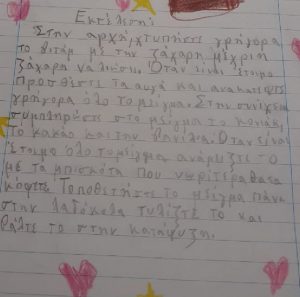 Εκτέλεση:
Στην αρχή χτυπήστε γρήγορα
το βιτάμ με την ζάχαρη μέχρι η
ζάχαρη να λιώσει. Όταν είναι έτοιμο
Προσθέστε τα αυγά και ανακατέψτε
γρήγορα όλο το μείγμα. Στην συνέχεια
συμπληρώστε στο μείγμα το κονιάκ,
Το κακάο και την βανίλια. Όταν είναι
έτοιμο όλο το μείγμα αναμίξτε το
με τα μπισκότα που νωρίτερα θα τα
κόψετε Τοποθετήστε το μείγμα πάνω
στην λαδόκολα τυλίξτε το και
βάλτε το στην κατάψυξη.